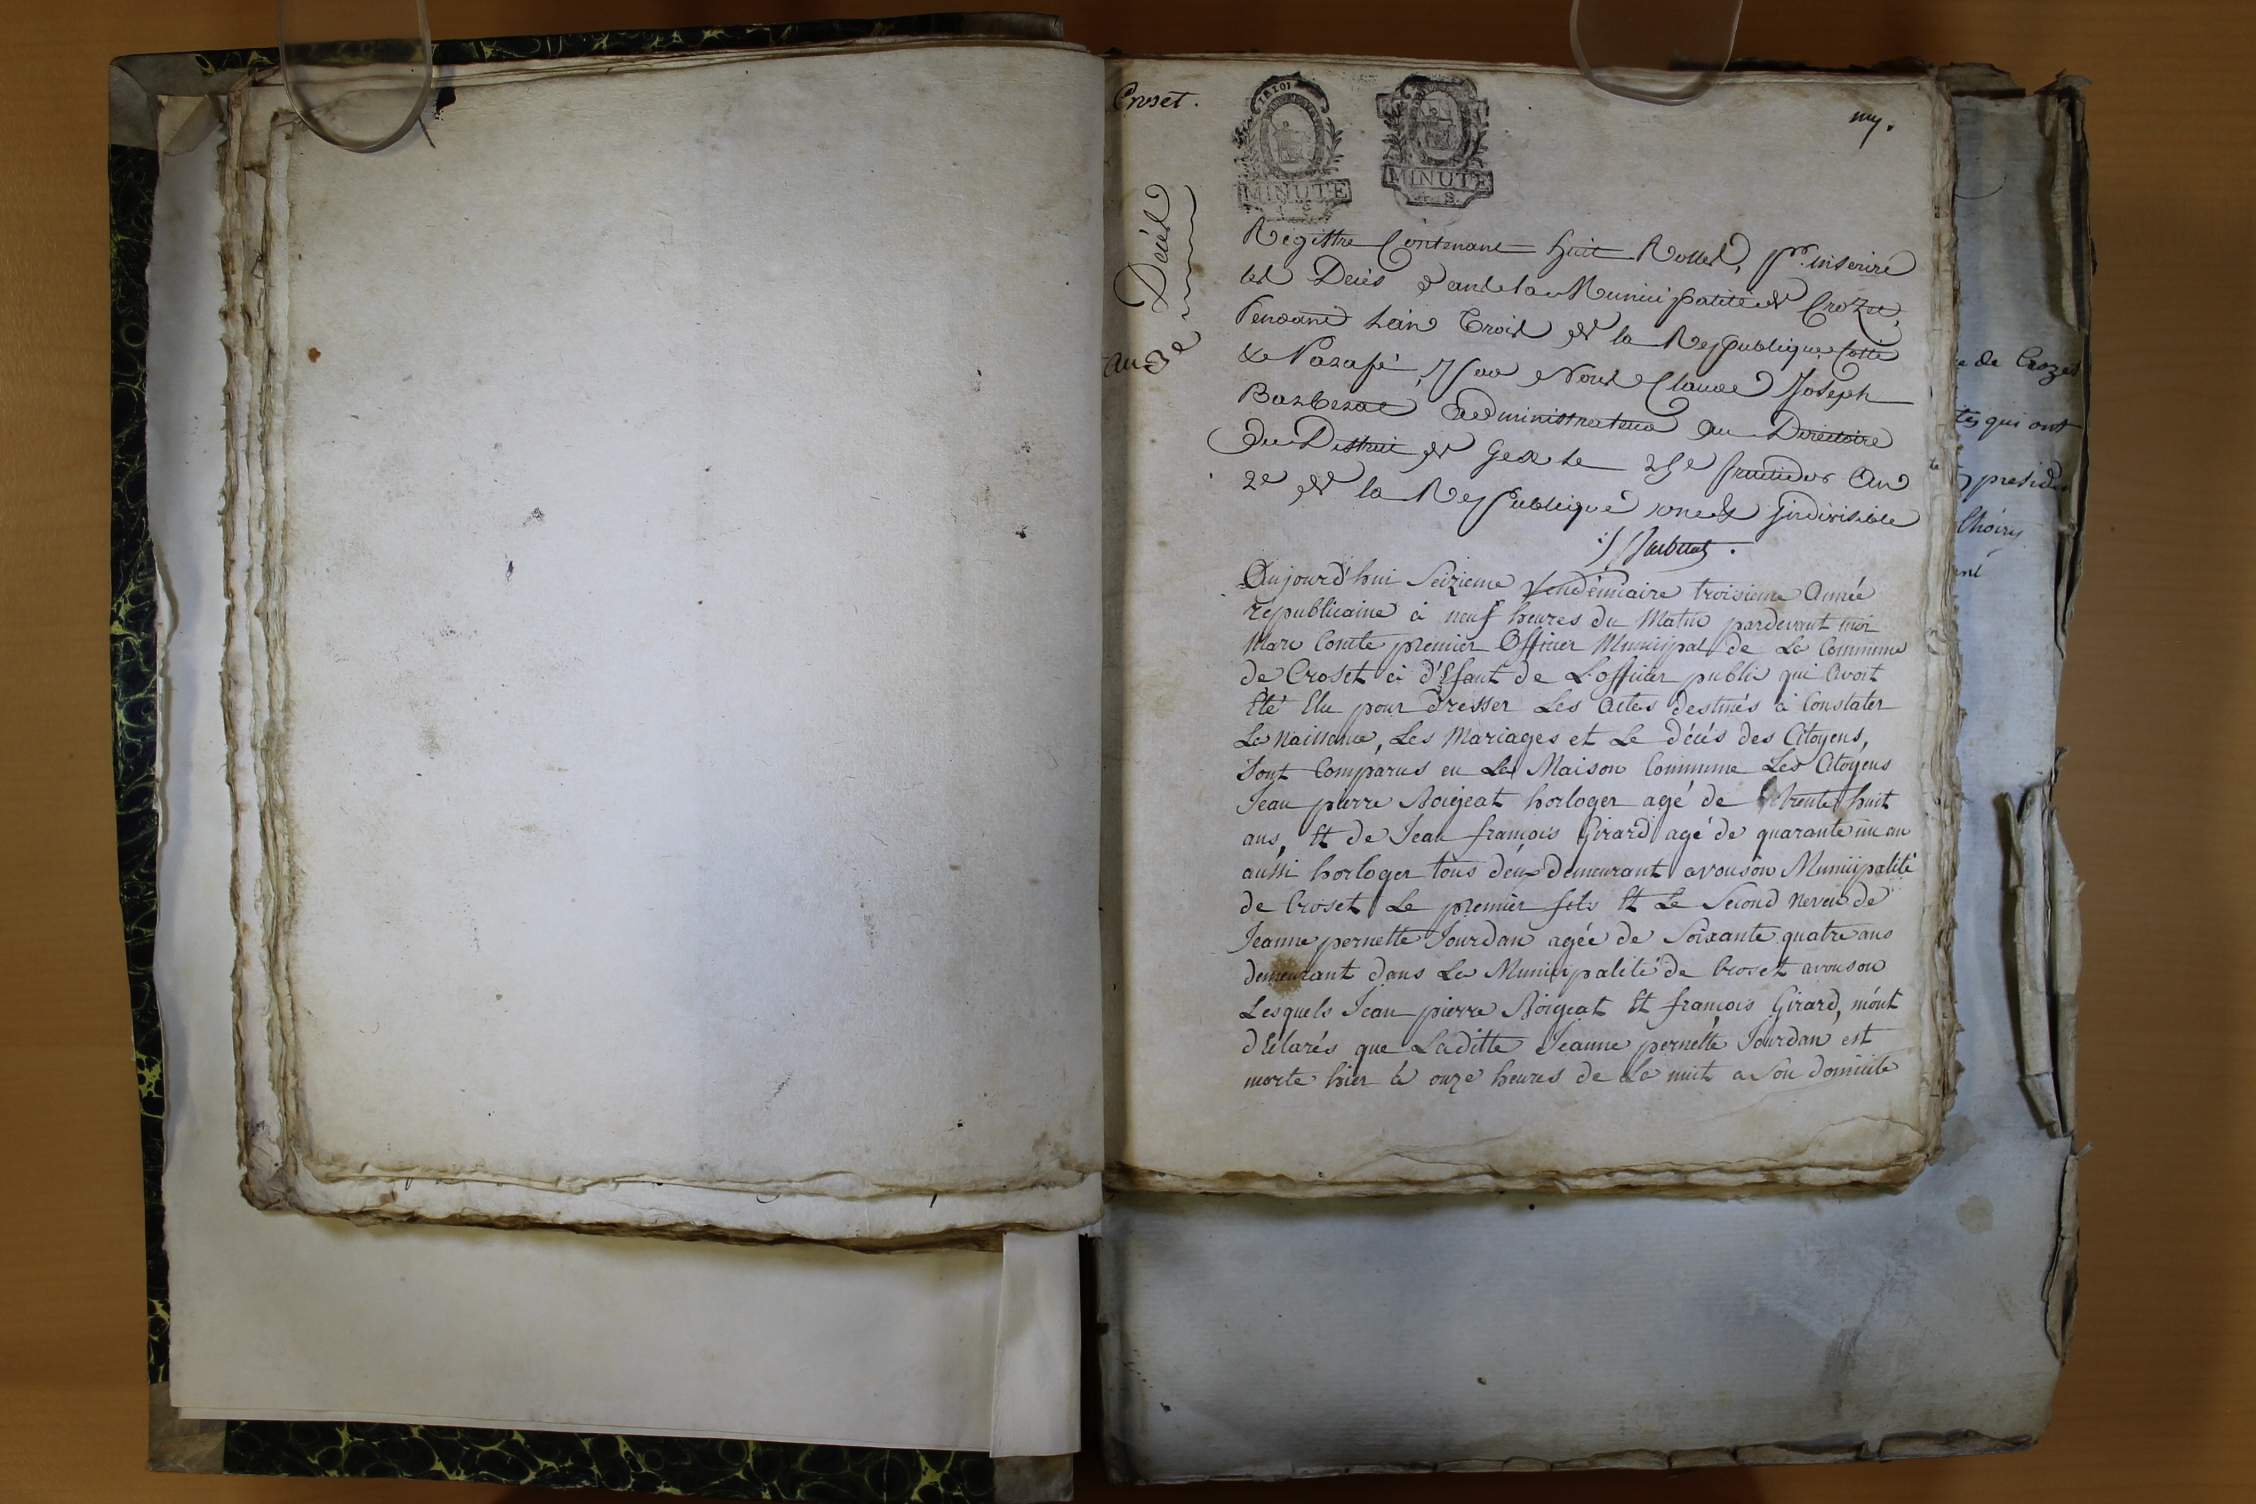 Croset.
MINUTE
MINUTE
8 S.
Décès
an 3e
Registre Contenant huit Rolles, pr. inscrire
les Décès dans la Municipalité de Crozet,
Pendant L'an Trois de la Republique Cotté
& Parafé, par Nous Claude Joseph
Barberat administrateur au Directoire
du District de Gex le 25e fructidor an
2e de la Republique une & indivisible
Barberat.
Aujourd'hui Seizieme Vendémiaire troisieme Année
republicaine à neuf heures du Matin pardevant moi
Marc Comte premier Officier Municipal de La Commune
de Croset à d'Efaut de L'officier public qui avoit
Eté Elu pour dresser Les actes destinés à Constater
La naissance, Les Mariages et Le décès des Citoyens,
Sont Comparus en La Maison Commune Les Citoyens
Jean pierre horloger agé de trente huit
ans, Et de Jean françois Girard agé de quarante un an
aussi horloger tous deux demeurant avouson Municipalité
de Croset Le premier fils Et Le Second neveu de
Jeanne pernette Jourdan agée de Soixante quatre ans
demeurant dans La Municipalité de Croset avouson
Lesquels Jean pierre Et françois Girard, m'ont
dEclarés que Laditte Jeanne pernette Jourdan est
morte hier à onze heures de La nuit a Son domicile
de Crozet
qui ont
presid